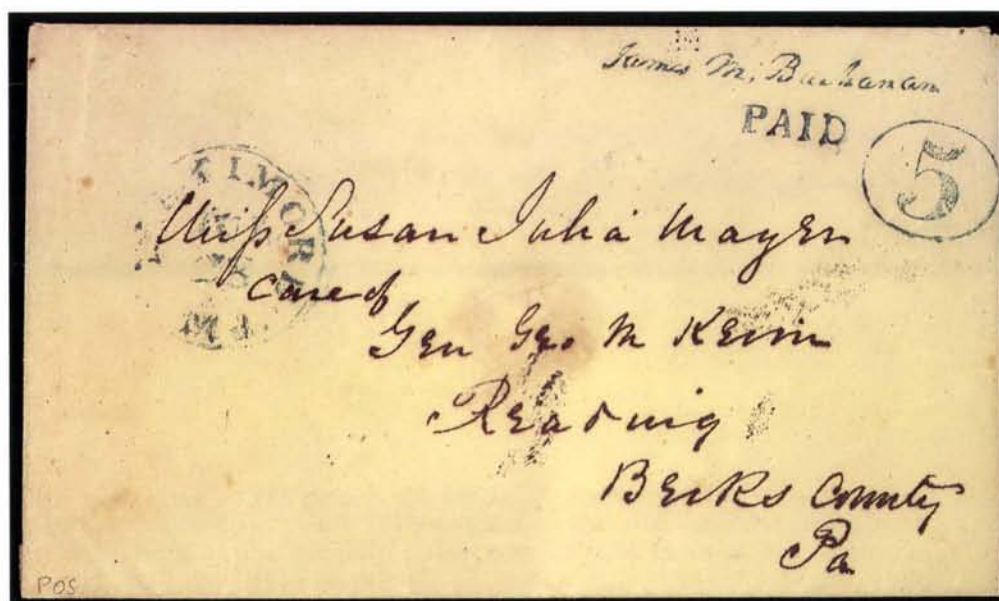 James M. Buchanan
PAID
5
Miss Susan Julia Mayer
Care of
Gen Geo. M Keim
Reading
Berks County
Pa
POS